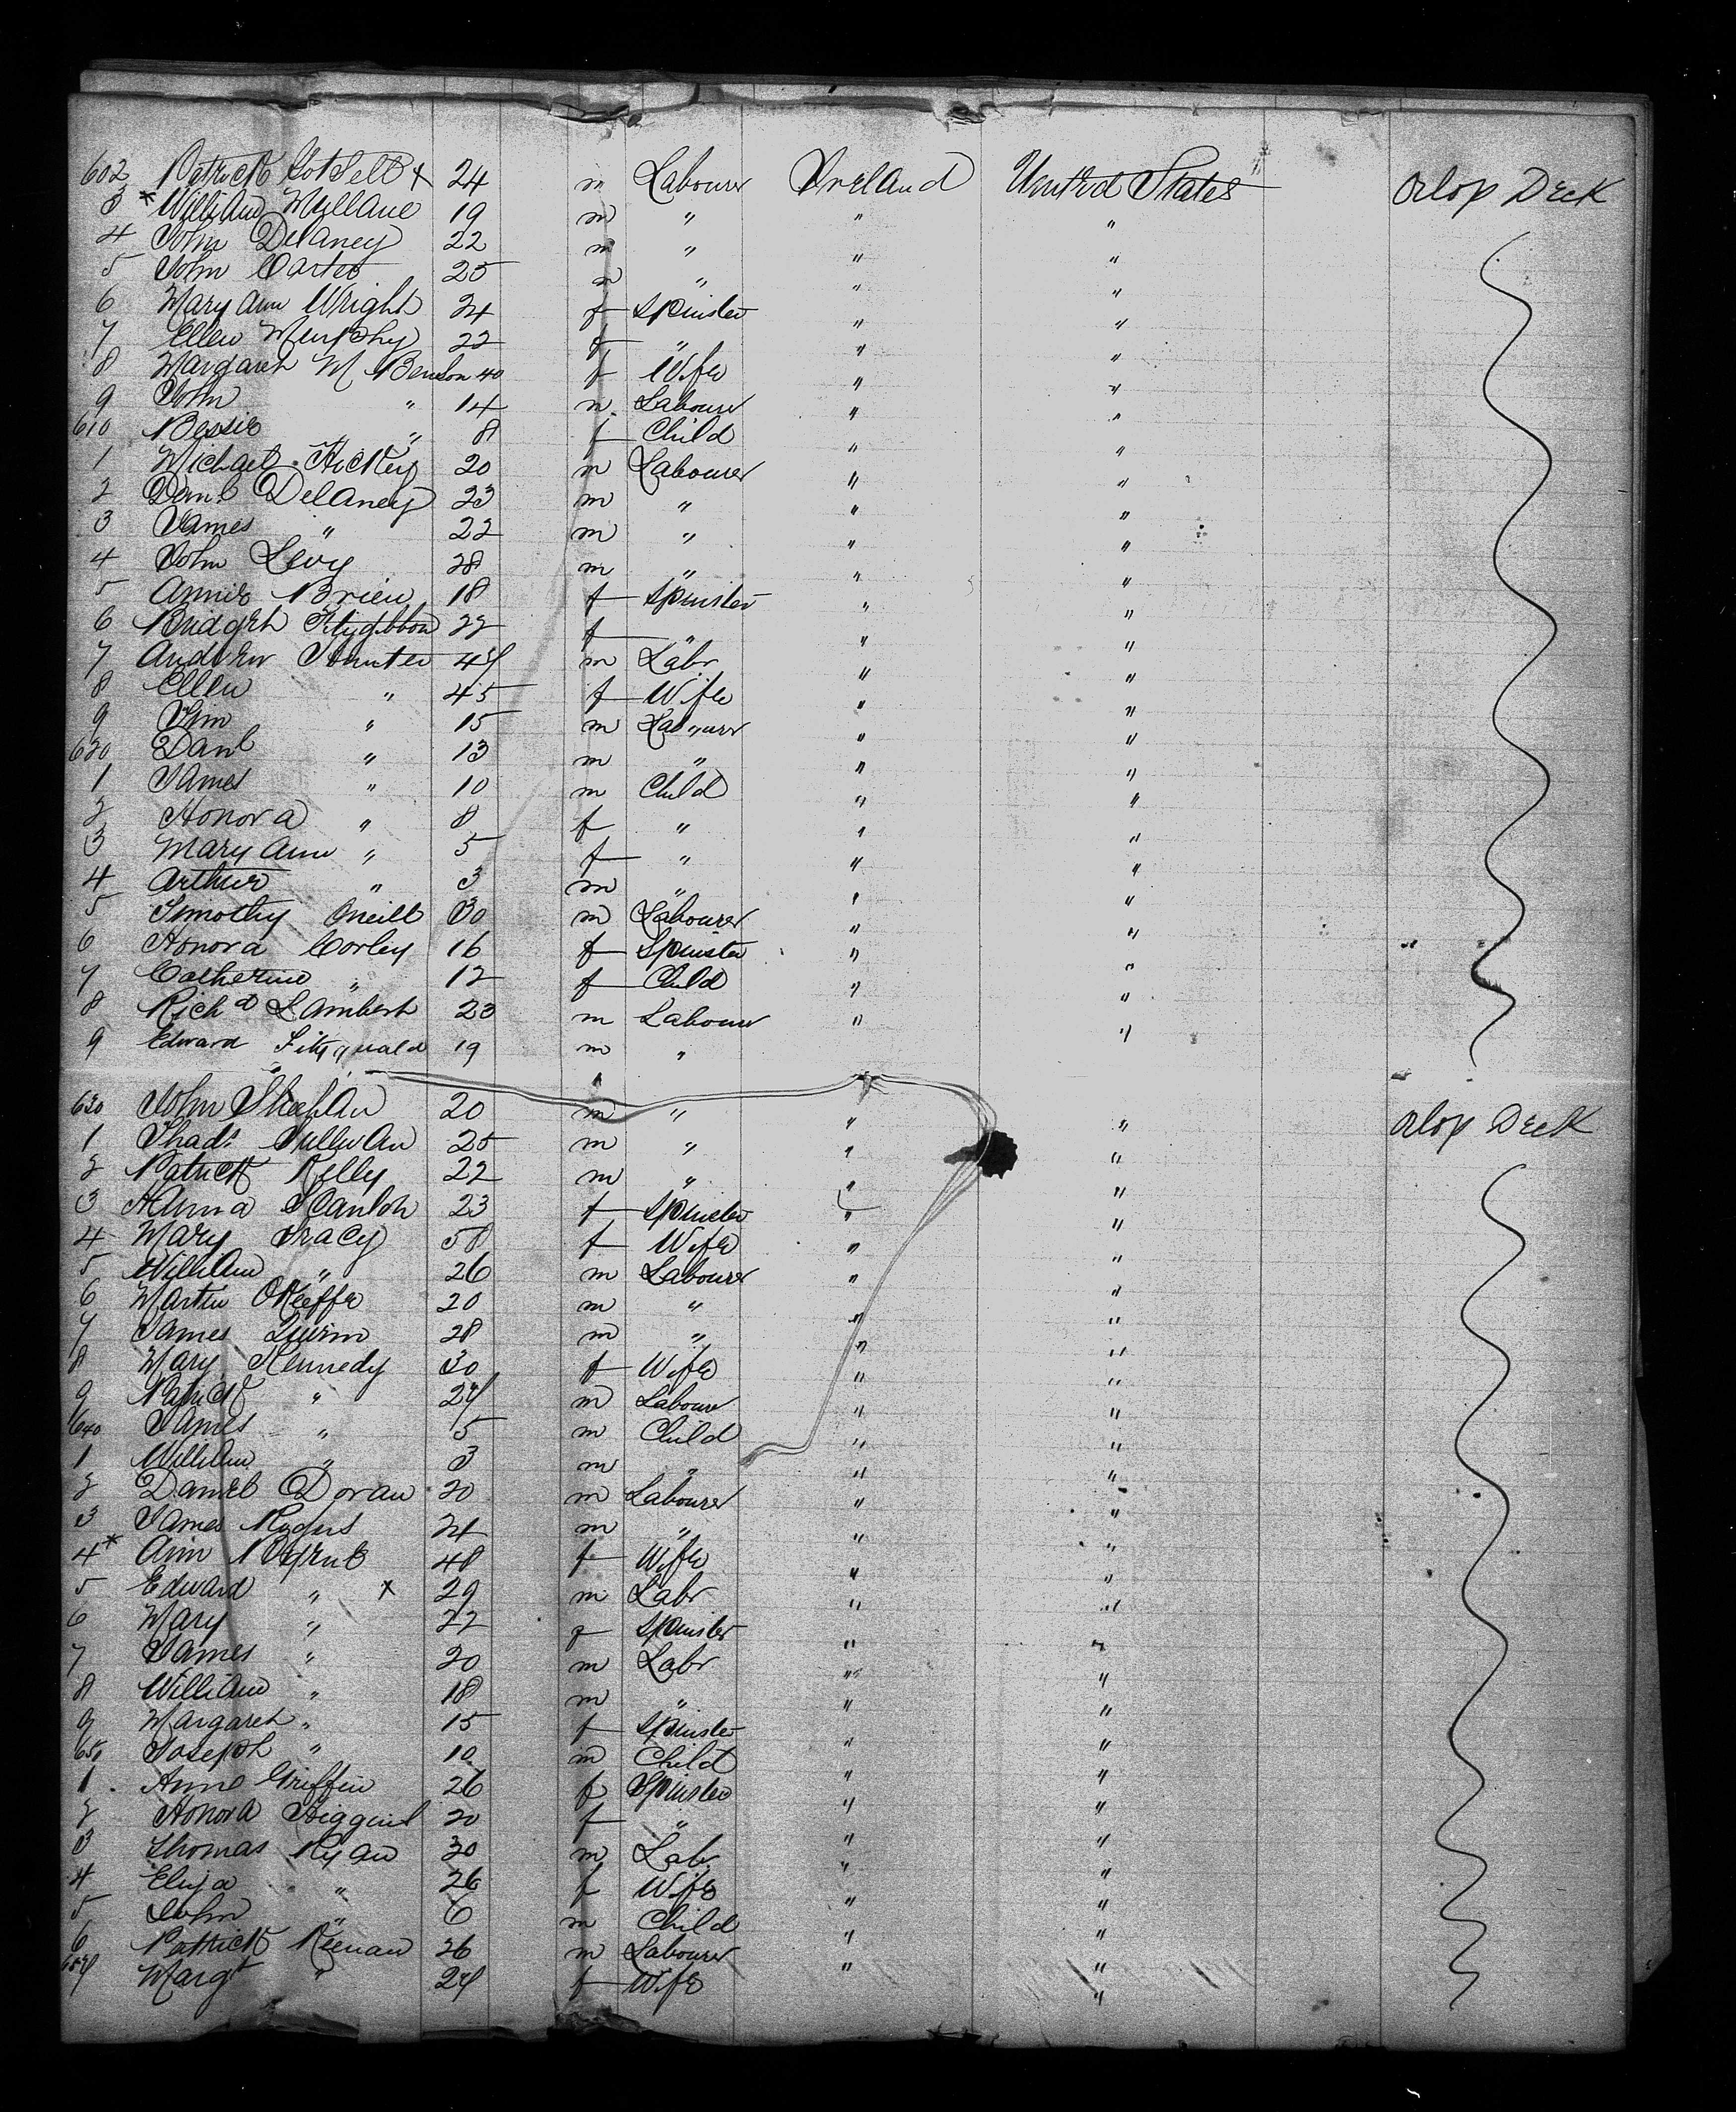 602 Patrick Gotsell x 24 m Labourer Ireland United States Orlop Deck
3 * William Mullane 19 m " " "
4 John Delaney 22 m " " "
5 John Carter 25 m " " "
6 Mary Ann Wright 24 f Spinster " "
7 Ellen Murphy 22 f " " "
8 Margaret M Benson 40 f Wife " "
9 John " 14 m Labourer " "
610 Bessie " 8 f Child " "
1 Michael Hickey 20 m Labourer " "
2 Danl Delaney 23 m " " "
3 James " 22 m " " "
4 John Levy 28 m " " "
5 Annie Brien 18 f Spinster " "
6 Bridget Fitzgibbon 22 f " " "
7 Andrew Hunter 47 m Labr " "
8 Ellen " 45 f Wife " "
9 Jim " 15 m Labourer " "
620 Danl " 13 m " " "
1 James " 10 m Child " "
2 Honora " 8 f " " "
3 Mary Ann " 5 f " " "
4 Arthur " 3 m " " "
5 Timothy Oneill 30 m Labourer " "
6 Honora Corley 16 f Spinster " "
7 Catherine " 12 f Child " "
8 Richd Lambert 23 m Labourer " "
9 Edward Fitzgerald 19 m "
630 John Sheehan 20 m " " " Orlop Deck
1 Thads Sullivan 25 m " " "
2 Patrick Kelly 22 m " " "
3 Hanna Scanlon 23 f Spinster " "
4 Mary Tracy 58 f Wife " "
5 William " 26 m Labourer " "
6 Martin OKeeffe 20 m " " "
7 James Quinn 28 m " " "
8 Mary Kennedy 30 f Wife " "
9 Patrick " 27 m Labourer " "
640 James " 5 m Child " "
1 William " 3 m " " "
2 Daniel Doran 20 m Labourer " "
3 James Rogers 24 m " " "
4 * Ann Nugent 48 f Wife " "
5 Edward " x 29 m Labr " "
6 Mary " 22 f Spinster " "
7 James " 20 m Labr " "
8 William " 18 m " " "
9 Margaret " 15 f Spinster " "
650 Joseph " 10 m Child " "
1 Anne Griffin 26 f Spinster " "
2 Honora Higgins 20 f " " "
3 Thomas Ryan 30 m Labr " "
4 Eliza " 26 f Wife " "
5 John " 6 m Child " "
6 Patrick Keenan 26 m Labourer " "
657 Margt " 27 f Wife "